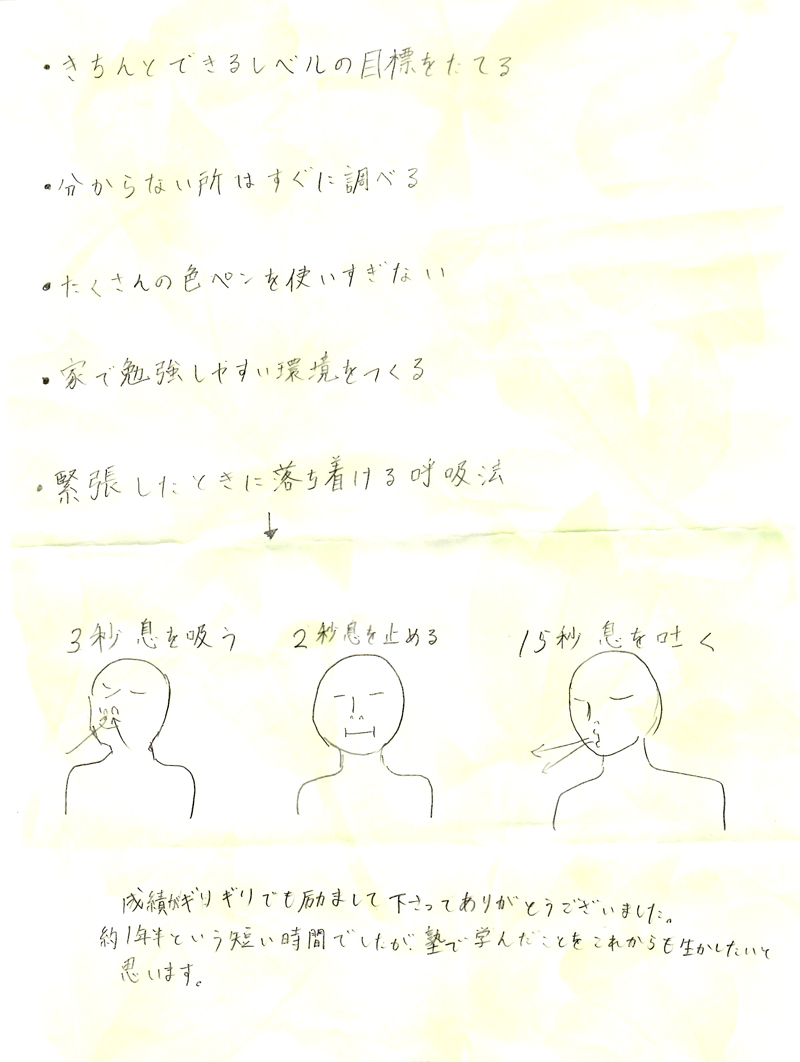 ・きちんとできるレベルの目標をたてる
・分からない所はすぐに調べる
・たくさんの色ペンを使いすぎない
・家で勉強しやすい環境をつくる
・緊張したときに落ち着ける呼吸法
↓
3秒息を吸う
2秒息を止める
15秒息を吐く
成績がギリギリでも励まして下さってありがとうございました。
約1年半という短い時間でしたが、塾で学んだことをこれからも生かしたいと
思います。